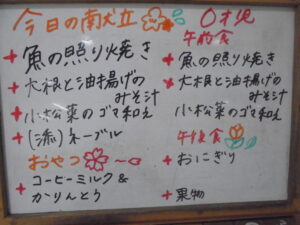 今日の献立
+ 魚の照り焼き
+ 大根と油揚げの
みそ汁
+ 小松菜のゴマ和え
+ (添)ネーブル
おやつ
+ コーヒーミルク&
かりんとう
0才児
午前食
+ 魚の照り焼き
+ 大根と油揚げの
みそ汁
小松菜のゴマ和え
午後食
+ おにぎり
+ 果物